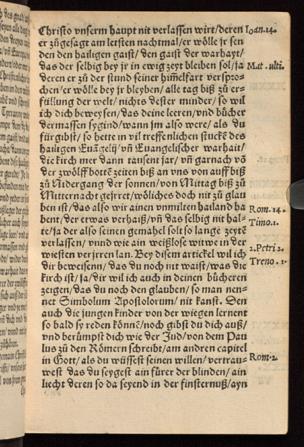 Christo vnserm haupt nit verlassen wirt/deren Joan.14.
er zůgesagt am letsten nachtmal/er wölle jr sen
den den hailigen gaist/den gaist der warhayt/
das der selbig bey jr in ewig zeyt bleiben sol/ja Mat.ulti.
deren er zů der stund seiner himelfart verspro-
chen/er wölle bey jr bleyben/alle tag biß zů er-
füllung der welt/nichts dester minder/so wil
ich dich beweysen/das deine leeren/vnd bücher
dermassen sygind/wann jm also were/als du
für gibst/so hette in vil treffenlichen stucks des
hailigen Euägelij vñ Euangelischer warhait/
die kirch mer dann tausent jar/vñ garnach võ
der zwölffbottẽ zeiten biß an vns von auff biß
zů Nidergang der sonnen/von Mittag biß zů
Mitternacht geirret/wölliches doch nit zů glau
ben ist/das also wir ainen vnmilten hailand ha Rom.14.
bent/der etwas verhaiß/vñ das selbig nit hal- Timo.1.
te/ja der also seinen gemahel solt so lange zeytẽ
verlassen/vnnd wie ain weißlose witwe in der .2.Petri 2.
wiesten verjrren lan. Bey disem artickel wil ich Treno.1.
dir beweisenn/das du noch nit waist/was die
kirch ist/ja/dir wil ich auch in deinen bücheren
zeigen/das du noch den glauben/so man nen-
net Simbolum Apostolorum/nit kanst. Den
auch die jungen kinder von der wiegen lernent
so bald sy reden könnẽ/noch gibst du dich auß/
vnd berümpst dich wie der Jud/von dem Pau
lus zů den Römern schreibt/am andren capitel
in Gott/als du wüssest seinen willen/vertrau- Rom.2.
west das du seygest ain fürer der blinden/ain
liecht deren so da seyend in der finsternuß/ayn